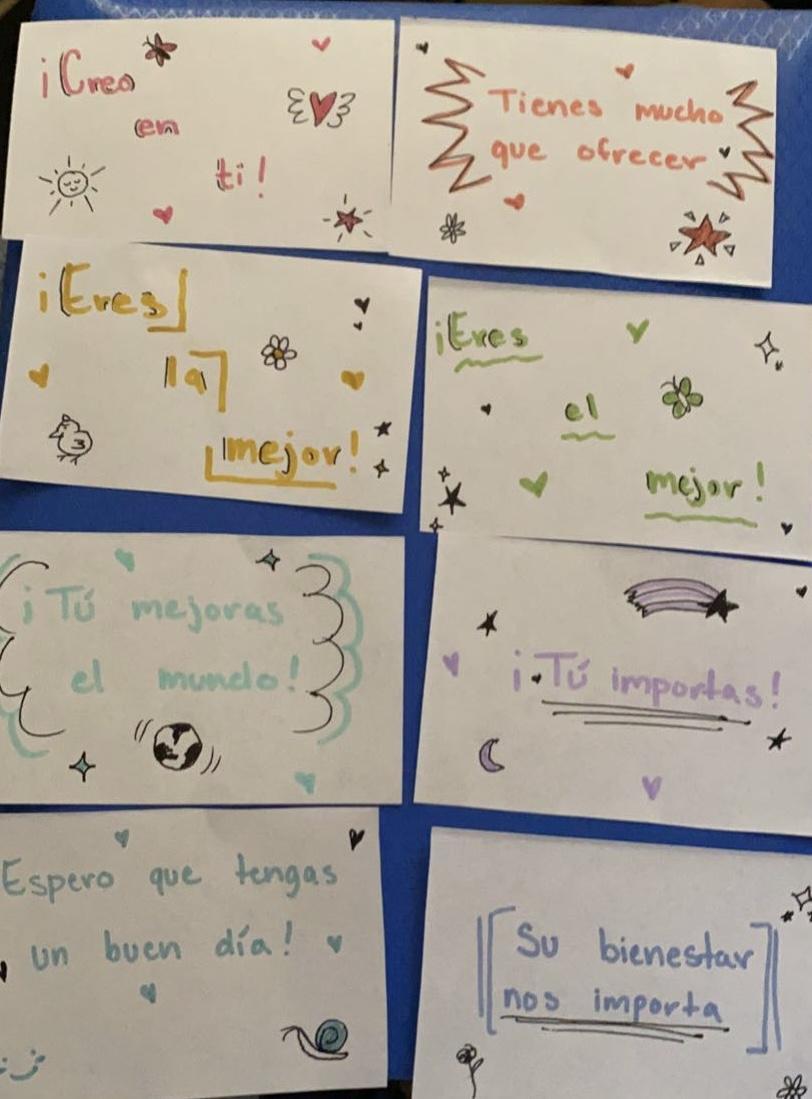 ¡Creo
en
ti!
Tienes mucho
que ofrecer
¡Eres
la
mejor!
¡Eres
el
mejor!
¡Tú mejoras
el mundo!
¡Tú importas!
Espero que tengas
un buen día!
Su bienestar
nos importa